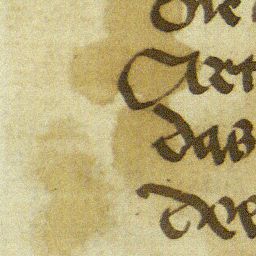 die
Art
das
der